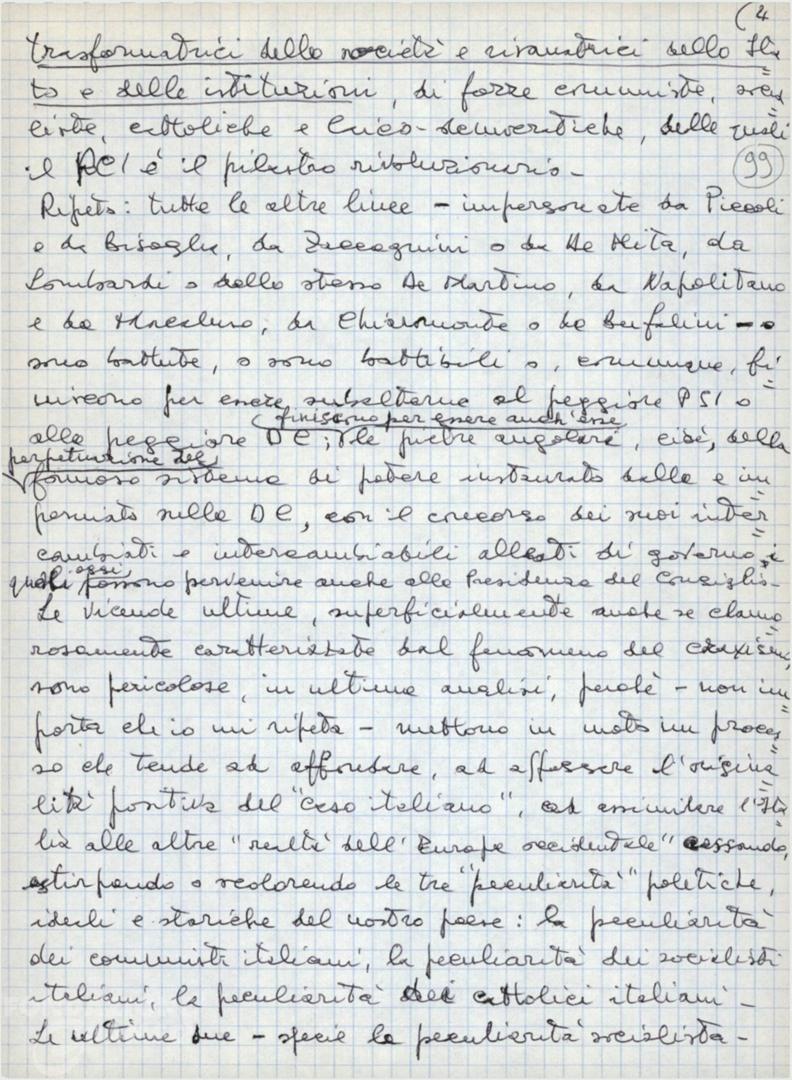 (4
trasformatrici della società e risanatrici dello Sta
to e delle istituzioni, di forze comuniste, socia
liste, cattoliche e laico-democratiche, delle quali
il PCI è il pilastro rivoluzionario-
99
Ripeto: tutte le altre linee - impersonate da Piccoli
e da Bisaglia, da Zaccagnini o da De Mita, da
Lombardi o dallo stesso De Martino, da Napolitano
e da Macaluso, da Chiaromonte o da Bufalini - o
sono battute, o sono battibili o, comunque, fi
niscono per essere subalterne al peggiore PSI o
finiscono per essere anch'esse
alla peggiore DC; le pietre angolari, cioè, della
perpetuazione del
famoso sistema di potere instaurato dalla e im
perniato nella DC, con il concorso dei suoi inter
cambiati e intercambiabili alleati di governo, i
oggi
quali possono pervenire anche alla Presidenza del Consiglio-
Le vicende ultime, superficialmente anche se clamo
rosamente caratterizzate dal fenomeno del craxismo,
sono pericolose, in ultima analisi, perché - non im
porta che io mi ripeta - mettono in moto un proces
so che tende ad affondare, ad affossare l'origina
lità positiva del "caso italiano", ad assimilare l'Ita
lia alle altre "realtà dell'Europa occidentale" cassando,
estirpando o scolorendo le tre "peculiarità" politiche,
ideali e storiche del nostro paese: la peculiarità
dei comunisti italiani, la peculiarità dei socialisti
italiani, la peculiarità dei cattolici italiani-
Le ultime due - specie la peculiarità socialista-